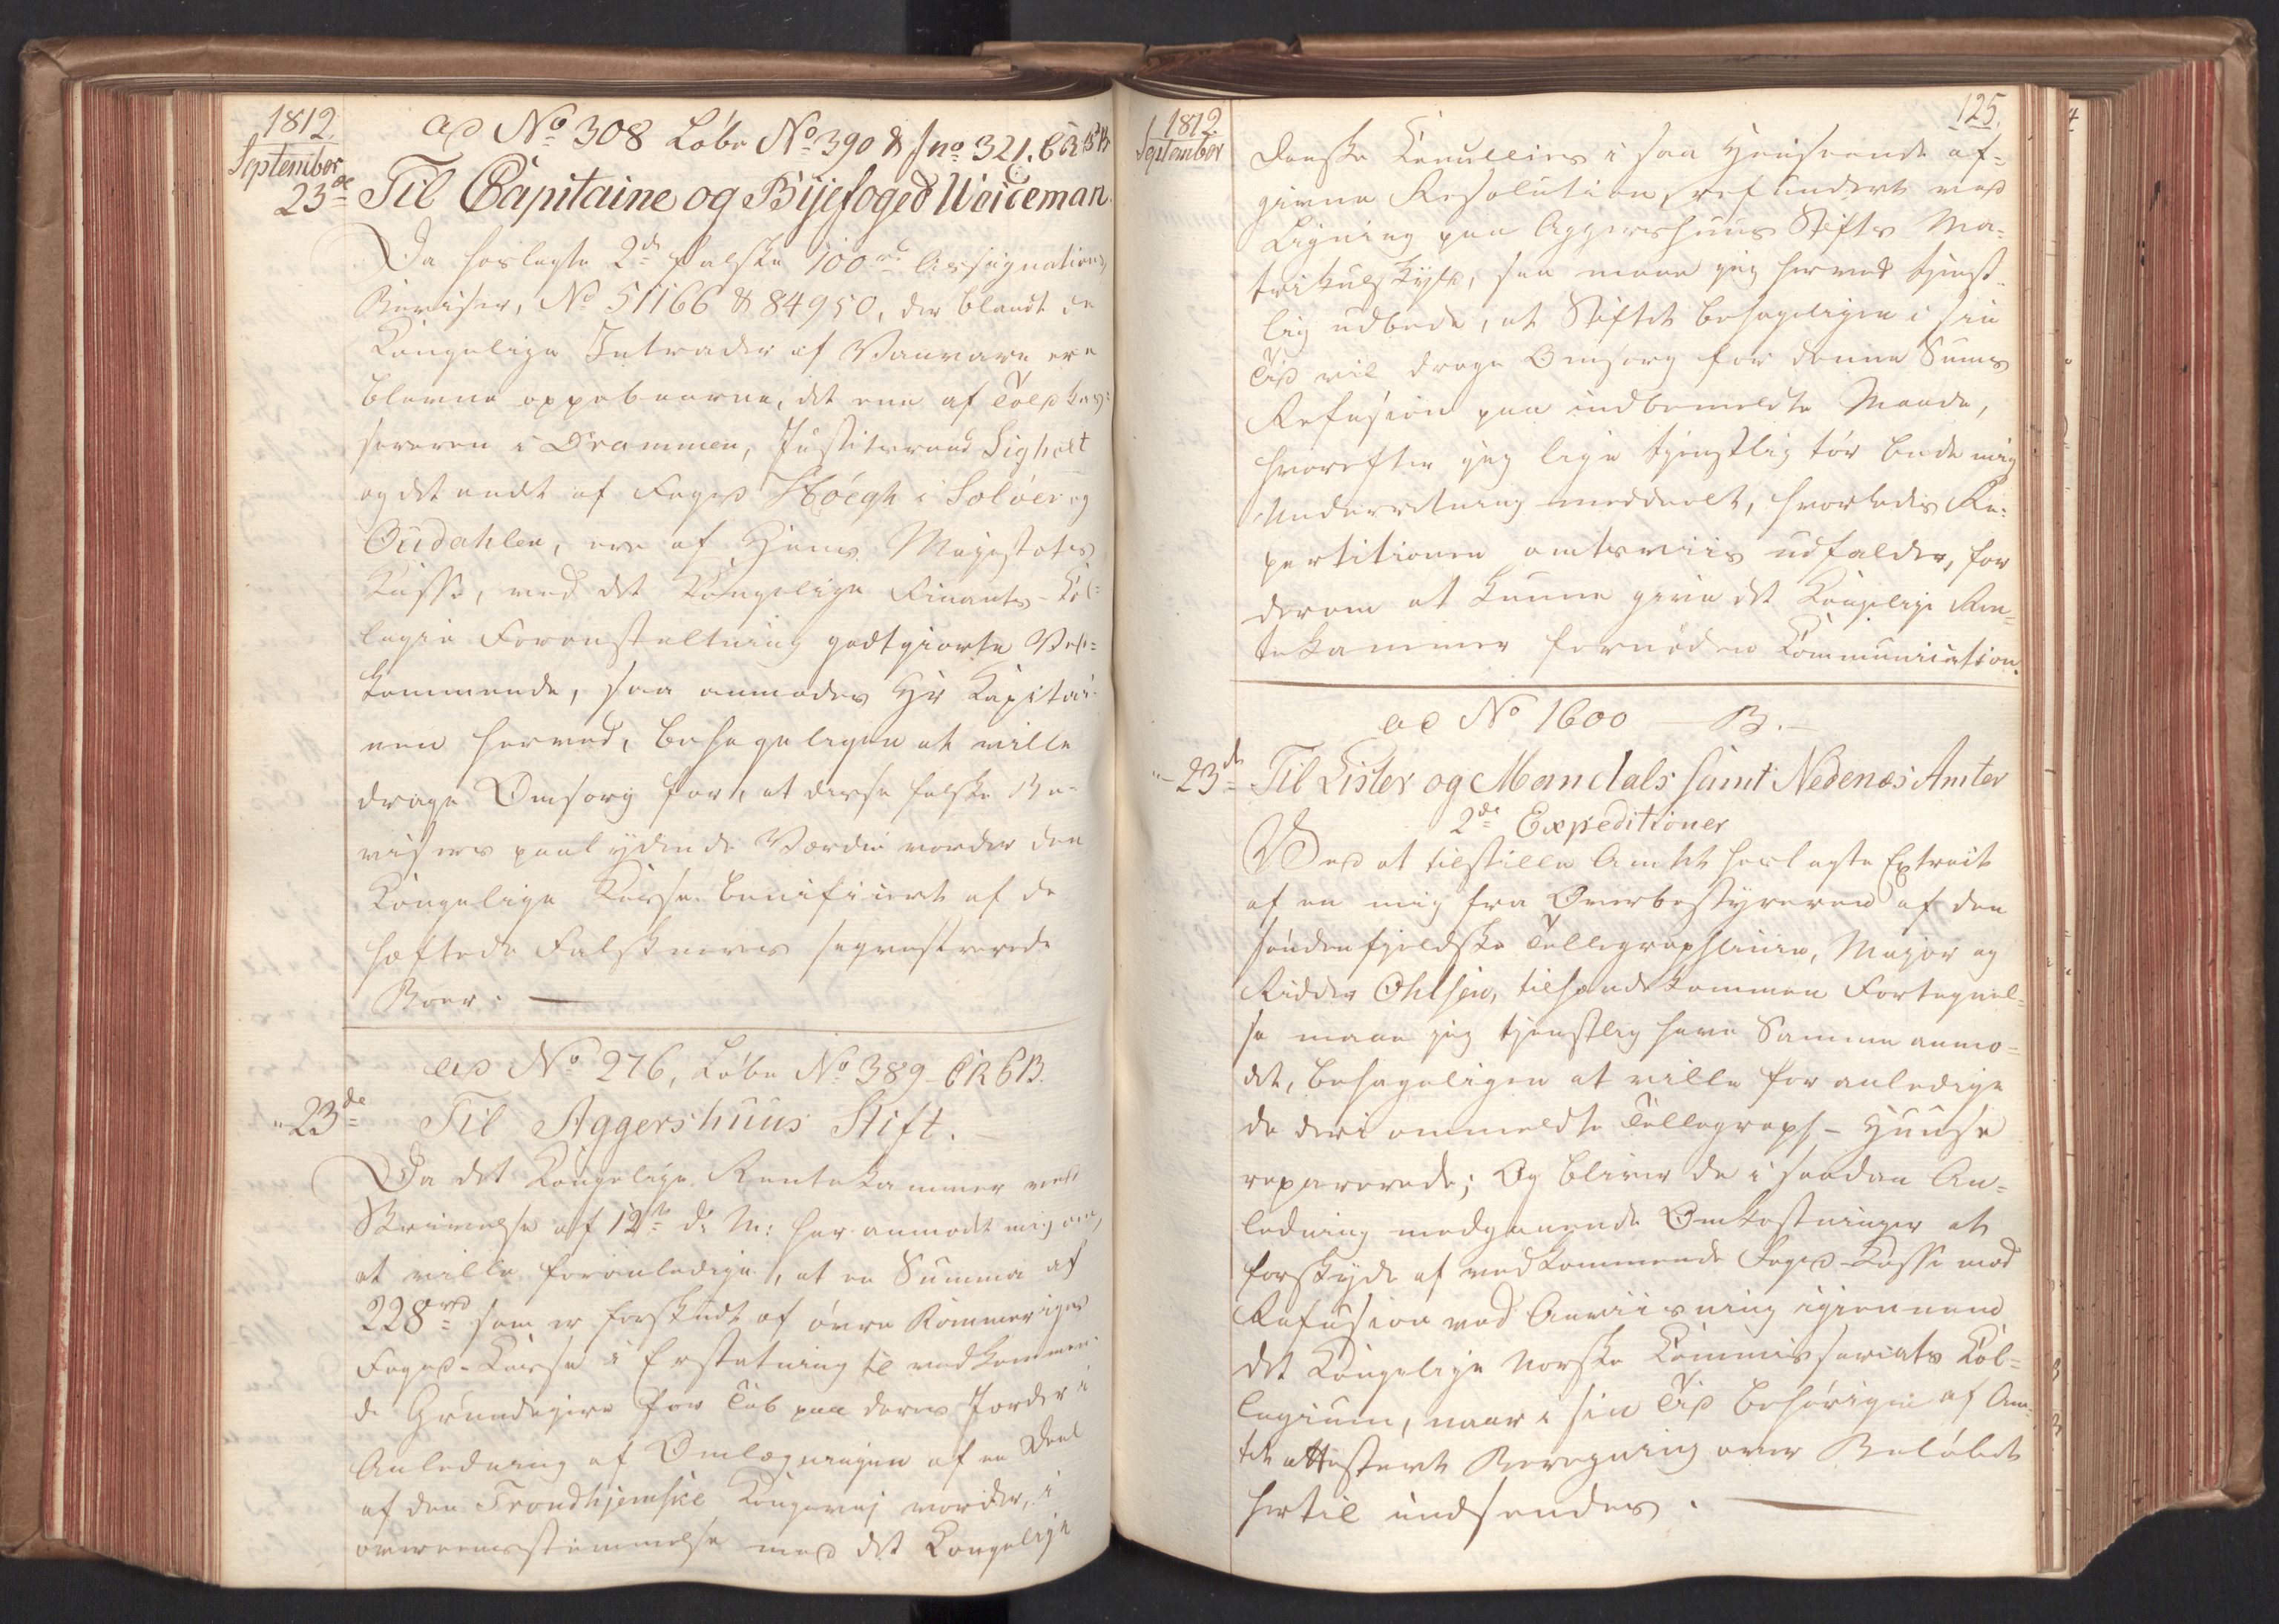 1812.
September
ad No 308 Løbe No 390 & Jno 321. CR B
23de Til Capitaine og Bijefoged Weideman.
Da hoslagte 2de falske 100rd Assignations
Beviser, No 51166 & 84950, der blandt de
Kongelige Intrader af Vanvare ere
blevne oppebaarne, det ene af Toldkas=
sereren i Drammen, Justitsraad Sigholt
og det andet af Foged Høegh i Soløer og
Oudahlen, ere af Hans Majestæts
Kasse, ved det Kongelige Finants-Col=
legie Foranstaltning godtgiorte Ved=
kommende, saa anmodes Hr Kapitai=
nen herved, behageligen at ville
drage Omsorg for, at disse falske Be=
visers paalydende Værdie vorder den
Kongelige Kasse beneficeret af de
hæftede Falskneres seqvestrerede
Boer. —
ad No 276, Løbe No 389 - CR 6 B.
" 23de Til Aggershuus Stift. —
Da det Kongelige Rentekammer ved
Skrivelse af 12te d: M: har anmodet mig om,
at ville foranledige, at en Summa af
228rd som er forskudt af øvre Rommeriges
Foged-Kasse i Erstatning til vedkommen=
de Grundejere for Tab paa deres Jorder i
Anledning af Omlægningen af en Deel
af den Trondhjemske Kongevej vorder, i
overeensstemmelse med det Kongelige
125.
1812.
September
danske Cancellies i saa Henseende af=
givne Resolution, refunderet ved
Ligning paa Aggershuus Stifts Ma=
trikulskyld, saa maae jeg herved tjenst=
lig udbede, at Stiftet behageligen i sin
Tid vil drage Omsorg for denne Sums
Refusion paa indbemeldte Maade,
hvorefter jeg lige tjenstlig tør bede mig
Underretning meddeelt, hvorledes Re=
partitionen amtsviis udfalder, for
derom at kunne give det Kongelige Ren=
tekammer fornøden Communication.
ad No 1600 — B. —
" 23de Til Lister og Mandals samt Nedenæs Amter
2de Expeditioner
Ved at tilstille Amtet hoslagte Extract
af en mig fra Overbestyreren af den
søndenfjeldske Tellegraphlinie, Major og
Ridder Ohlsen, tilhændekommen Fortegnel=
se maae jeg tjenstlig have Samme anmo=
det, behageligen at ville foranledige
de deri ommeldte Tellegraph-Huuse
reparerede; Og bliver de i saadan An=
ledning medgaaende Omkostninger at
forskyde af vedkommende Foged-Kasse mod
Refusion ved Anviisning igiennem
det Kongelige norske Commissariats Col=
legium, naar i sin Tid behørigen af Am=
tet attesteret Beregning over Beløbet
hertil indsendes. —